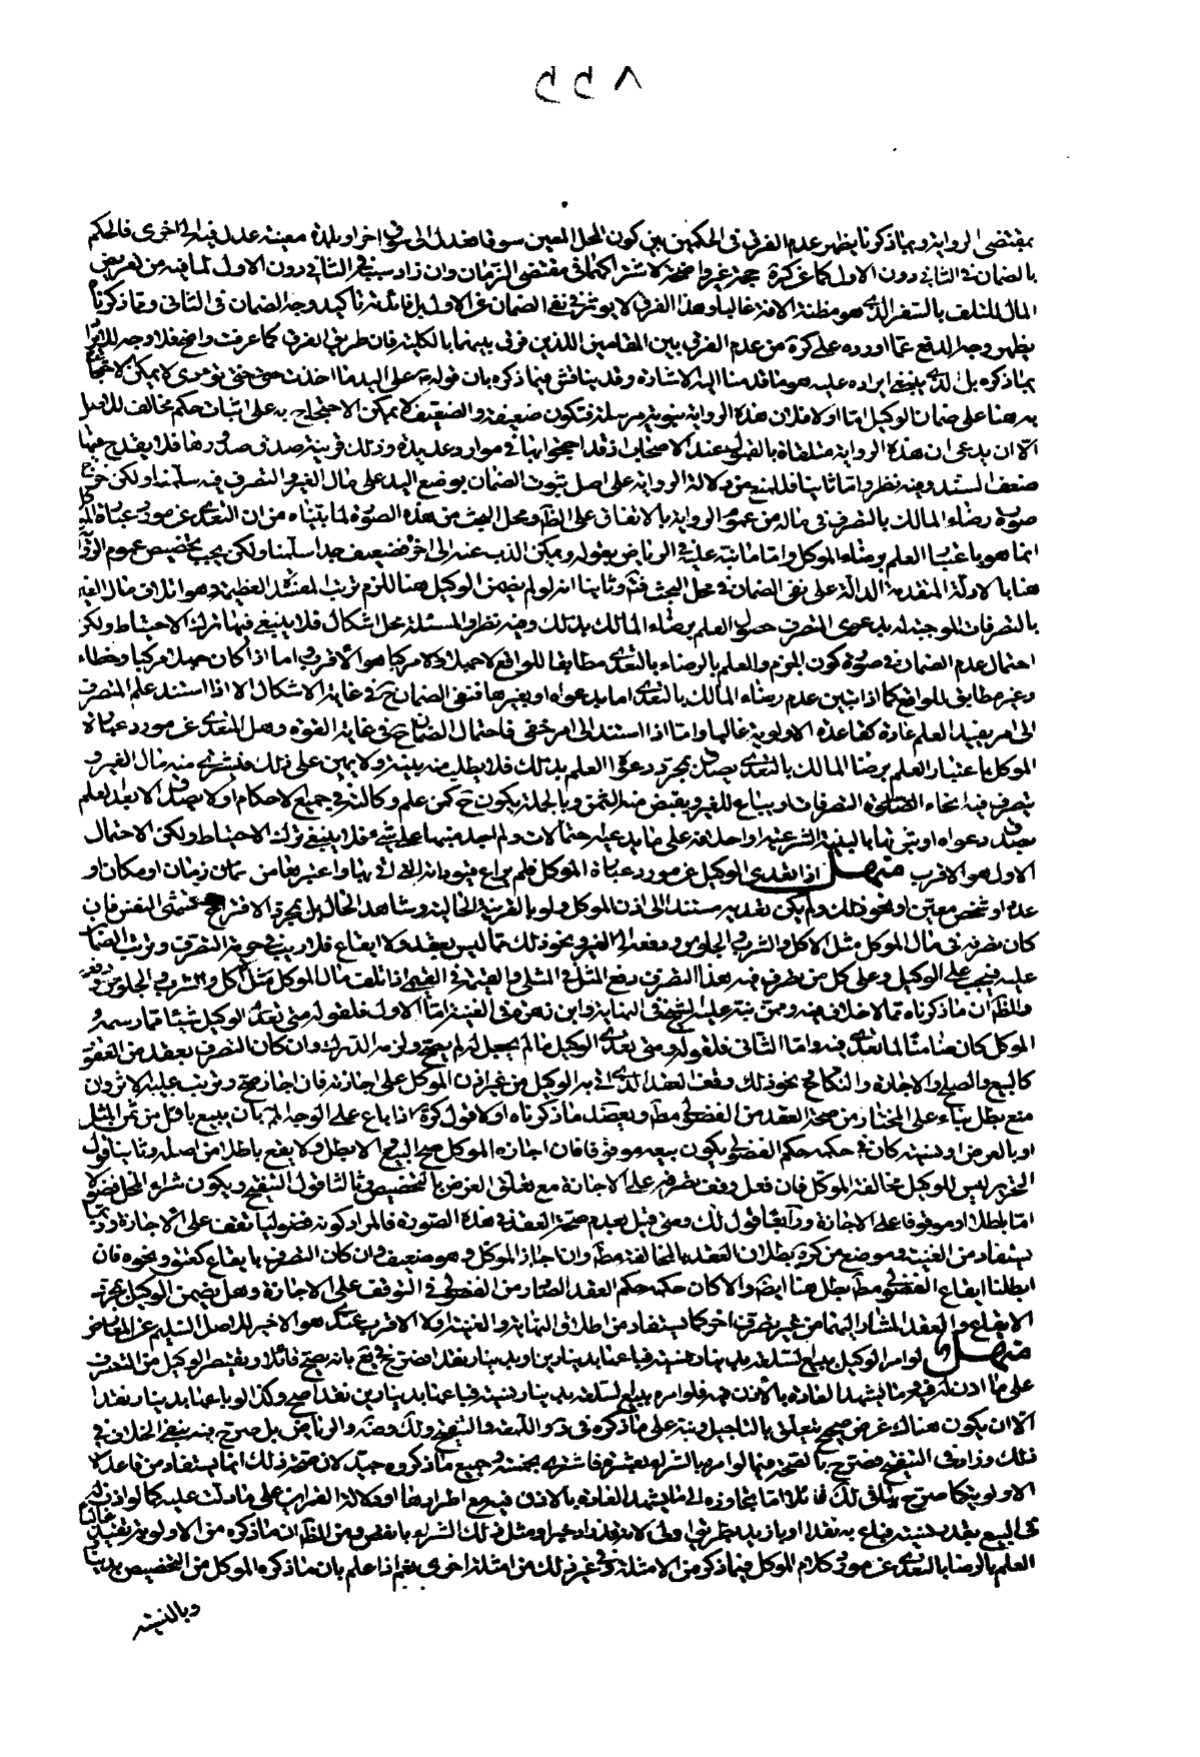 بمقتضى الرواية وبما ذكرنا يظهر عدم الفرق فى الحكمين بين كون المحل المعين سوقا فعدل الى سوق اخر او بلدة معينة عدل فيه الى اخرى فالحكم
بالضمان فى الثانى دون الاول كما عن كرة حجة غير واضحة لاشتراكهما فى مقتضى الزمان وان زاد سببه فى الثانى دون الاول لما فيه من تعريض
المال للتلف بالسفر الذى هو مظنة الافة غالبا وهذا الفرق لا يوثر فى نفى الضمان عن الاول بل فائدته تاكيد وجه الضمان فى الثانى وبما ذكرنا
يظهر وجه الدفع عما اورده على كرة من عدم الفرق بين المقامين اللذين فرق بينهما بالكلية فان طريق الفرق كما عرفت واضح فلا وجه للايراد
بما ذكره بل الذى ينبغى ايراده عليه هو ما قدمنا اليه الاشارة وقد يناقش فيما ذكره بان قوله على اليد ما اخذت حتى تؤدى لا يمكن الاحتجاج
به هنا على ضمان الوكيل اما اولا فلان هذه الرواية نبوية مرسلة فتكون ضعيفة والضعيف لا يمكن الاحتجاج به على اثبات حكم مخالف للاصل
الا ان يدعى ان هذه الرواية متلقاة بالقبول عند الاصحاب فقد احتجوا بها فى موارد عديدة وذلك قرينة صدق صدورها فلا يقدح فيها
ضعف السند وفيه نظر واما ثانيا فللمنع من دلالة الرواية على اصل ثبوت الضمان بوضع اليد على مال الغير والتصرف فيه سلمنا ولكن خرج
صورة رضاء المالك بالتصرف فى ماله من عموم الرواية بالاتفاق على الظ ومحل البحث من هذه الصورة لما بيناه من ان التعدى عن مورد عبارة
انما هو باعتبار العلم برضاء الموكل واما ما نبه عليه فى الرياض بقوله ويمكن الذب عنه الى اخره فضعيف جدا سلمنا ولكن يجب تخصيص عموم الرواية
هنا بالادلة المتقدمة الدالة على نفى الضمان فى محل البحث فتم وثانيا انه لو لم يضمن الوكيل هنا للزم ترتب المفسدة العظيمة وهو اتلاف مال الغير
بالتصرفات الموجبة له بدعوى المتصرف حصول العلم برضاء المالك بذلك وفيه نظر والمسئلة محل اشكال فلا ينبغى فيها ترك الاحتياط ولكن
احتمال عدم الضمان فى صورة كون الجزم والعلم بالرضاء بالتعدى مطابقا للواقع لا جهلا مركبا هو الاقرب واما اذا كان جهلا مركبا وخطاء
وغير مطابق للواقع كما اذا تبين عدم رضاء المالك بالتعدى اما بدعواه او بغيرها فنفى الضمان ح فى غاية الاشكال الا اذا استند علم المتصرف
الى امر يفيد العلم عادة كقاعدة الاولوية غالبا واما اذا استند الى امر خفى فاحتمال الضمان ح فى غاية القوة وهل المتعدى عن مورد عبارة
الموكل باعتبار العلم برضا المالك بالتعدى يصدق بمجرد دعوى العلم بذلك فلا يطلب منه بينة ولا يمين على ذلك فيشترى منه مال الغير و
يتصرف فيه انحاء التصرفات او يبتاع للغير ويقبض منه الثمن وبالجملة يكون ح كمن علم وكالته فى جميع الاحكام او لا يصدق الا بعد العلم
بصدق دعواه او ثبوتها بالبينة الشرعية او احلافه على ما يدعيه احتمالات ولم اجد منها على شىء فلا ينبغى ترك الاحتياط ولكن الاحتمال
الاول هو الاقرب منهل اذا تعدى الوكيل عن مورد عبارة الموكل فلم يراع قيود اذنه التى اتى بها واعتبرها من زمان او مكان او
عدد او شخص معين او نحو ذلك ولم يكن تعديه مستندا الى اذن الموكل ولو بالقرينة الحالية وشاهد الحال بل بمجرد الاقتراح ومشتهى النفس فان
كان تصرفه فى مال الموكل مثل الاكل والشرب والجلوس ودفعه الى الغير ونحو ذلك مما ليس بعقد ولا ايقاع فلا ريب فى حرمة التصرف وترتب الضمان
عليه فيجب على الوكيل وعلى كل من تصرف فيه هذا التصرف دفع المثل فى المثلى والقيمة فى القيمى اذا تلف مال الموكل مثل اكل والشرب والجلوس
والظ ان ما ذكرناه مما لا خلاف فيه وممن نبه عليه الشيخ فى النهاية وابن زهرة فى الغنية اما الاول فلقوله متى تعدى الوكيل شيئا مما رسمه
الموكل كان ضامنا لما تعدى فيه واما الثانى فلقوله ومتى تعدى الوكيل ما لم يجعل له لم يصح ولزمه الدرك وان كان التصرف بعقد من العقود
كالبيع والصلح والاجارة والنكاح نحو ذلك وقف العقد الذى اتى به الوكيل من غير اذن الموكل على اجازته فان اجاز صح وترتب عليه الاثر وان
منع بطل بناء على المختار من صحة العقد من الفضولى مط ويعضد ما ذكرناه اولا قول كرة اذا باع على الوجه المأمور بان يبيع باقل من ثمن المثل
او بالعرض او نسيئة كان حكمه حكم الفضولى يكون بيعه موقوفا فان اجازه الموكل صح البيع والا بطل ولا يقع باطلا من اصله وثانيا قول
التحرير ليس للوكيل مخالفة الموكل فان فعل وقف تصرفه على الاجازة مع تعلق الغرض بالتخصيص وثالثا قول التنقيح ويكون شراء المخالف فضوليا
اما باطلا او موقوفا على الاجازة ورابعا قول لك ومعنى قبل بعدم صحة العقد فى هذه الصورة فالمراد كونه فضوليا تقف على الاجازة وربما
يستفاد من الغنية وموضع من كرة بطلان العقد بالمخالفة مط وان اجاز الموكل وهو ضعيف وان كان التصرف بايقاع كعتق ونحوه فان
ابطلنا ايقاع الفضولى مط بطل هنا ايضا والا كان حكمه حكم العقد الصادر من الفضولى فى التوقف على الاجازة وهل يضمن الوكيل بمجرد
الايقاع والعقد المشار اليهما من غير تصرف اخر كما يستفاد من اطلاق النهاية والغنية او لا الاقرب عندى هو الاخير للاصل السليم عن المعارض
منهل لو امر الوكيل ببيع السلعة بدينار نسيئة فباعها بدينارين او بدينار نقدا فصرح فى يع بانه يصح قائلا ويقتصر الوكيل من التصرف
على ما اذن له فيه وما يشهد العادة بالاذن فيه فلو امره ببيع السلعة بدينار نسيئة فباعها بدينارين نقدا صح وكذا لو باعها بدينار نقدا
الا ان يكون هناك غرض صحيح يتعلق بالتاجيل ونبه على ما ذكره فى د واللمعة والتنقيح ولك وضه والرياض بل صرح فيه بنفى الخلاف فى
ذلك وزاد فى التنقيح فصرح بالصحة فيما لو امره بالشراء بعشرة فاشترى بخمسة وجميع ما ذكروه جيد لان صحة ذلك انما يستفاد من قاعدة
الاولوية كما صرح به فى لك قائلا اما تجاوزه الى ما يشهد العادة بالاذن فيه مع اطرادها او دلالة القرائن على ما دلت عليه كما لو اذن له
فى البيع بقدر نسيئة فباع به نقدا او بازيد بطريق اولى لانه قد زاد خيرا ومثل ذلك الشراء بانقص ومن الظ ان ما ذكره من الاولوية تفيد غالبا
العلم بالرضا بالتعدى عن مورد كلام الموكل فيما ذكر من الامثلة وفى غير ذلك من امثلة اخرى نعم اذا علم بان ما ذكره الموكل من التخصيص بدينار
وبالنسيئة